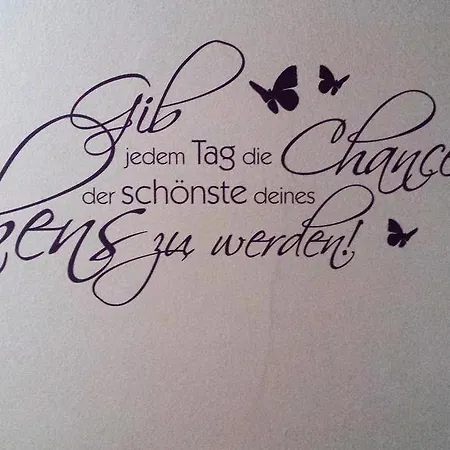 Gib
jedem Tag die Chance
der schönste deines
bens zu werden!